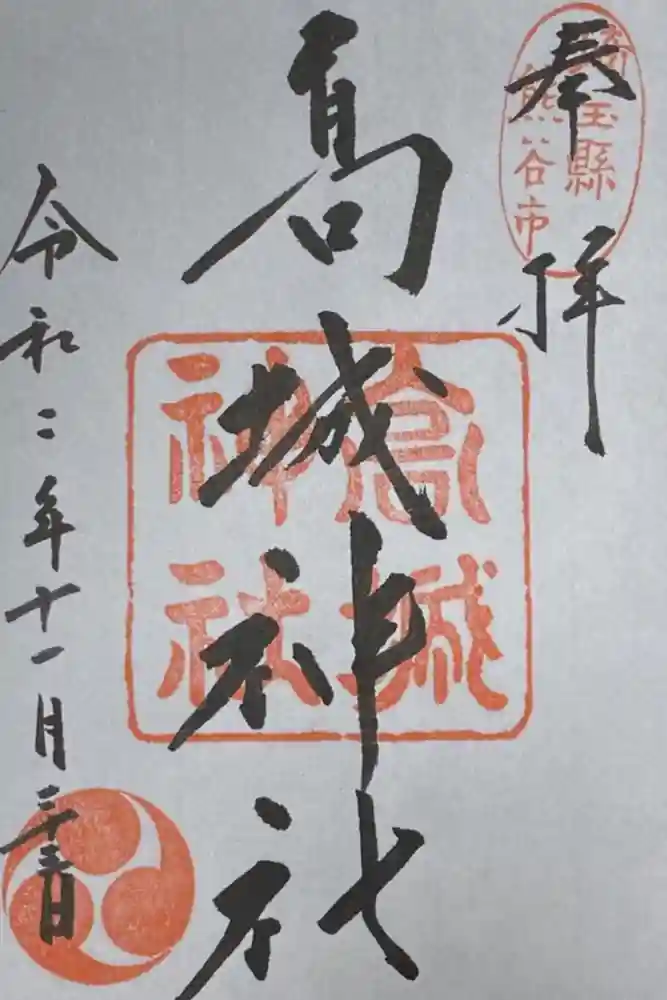 奉拝
埼玉縣
熊谷市
髙城神社
高城
神社
令和二年十一月二十三日